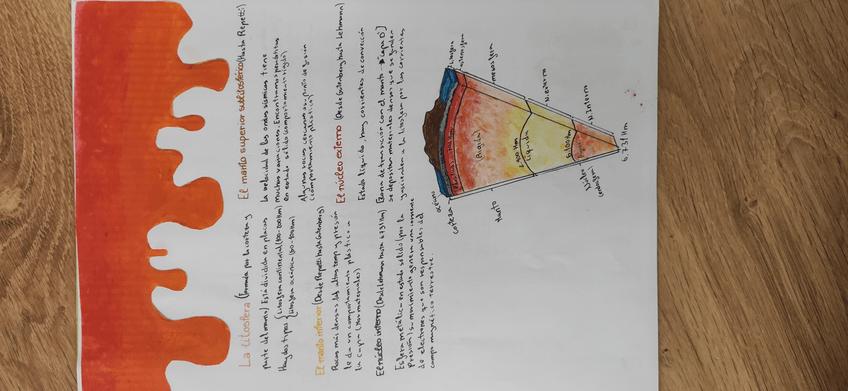 La litosfera (formada por la corteza y
parte del manto) Está dividida en placas
Hay dos tipos { Litosfera continental (100-200Km)
Litosfera oceánica (50-100Km)
El manto inferior (Desde Repetti hasta Gutenberg)
Rocas más densas del altas temp y presión
le da un comportamiento plástico a
la capa (los materiales)
El núcleo interno (Desde Lehmann hasta 6731Km)
Esfera metálica en estado sólido (por la
presión) su movimiento genera una corriente
de electrones que son responsables del
campo magnético terrestre.
El manto superior sublitosférico (Hasta Repetti)
La velocidad de las ondas sísmicas tiene
muchas variaciones. Encontramos peridotitas
en estado sólido (comportamiento rígido)
Algunas rocas cercanas a su punto de fusión
(comportamiento plástico)
El núcleo externo (Desde Gutenberg hasta Lehmann)
Estado líquido, hay corrientes de convección
Zona de transición con el manto → "Capa D"
se depositan materiales densos que se funden
y ascienden a la litosfera por las corrientes
océano
corteza
Manto
Litosfera
Astenosfera
mesosfera
N. externo
N. Interno
(Rígida)
Líquida
6.731 Km